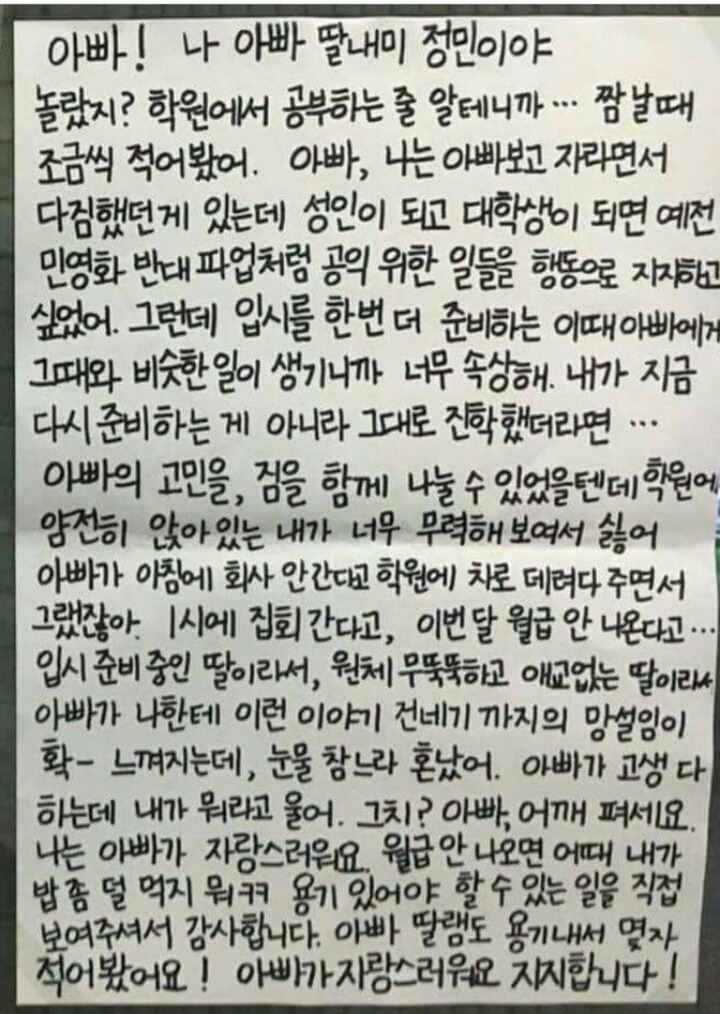 아빠! 나 아빠 딸내미 정민이야
놀랐지? 학원에서 공부하는 줄 알테니까… 짬 날 때
조금씩 적어봤어. 아빠, 나는 아빠보고 자라면서
다짐했던게 있는데 성인이 되고 대학생이 되면 예전
민영화 반대 파업처럼 공익 위한 일들을 행동으로 지지하고
싶었어. 그런데 입시를 한번 더 준비하는 이때 아빠에게
그때와 비슷한 일이 생기니까 너무 속상해. 내가 지금
다시 준비하는 게 아니라 그대로 진학했더라면 …
아빠의 고민을, 짐을 함께 나눌 수 있었을텐데 학원에
얌전히 앉아있는 내가 너무 무력해 보여서 싫어
아빠가 아침에 회사 안간다고 학원에 차로 데려다 주면서
그랬잖아. 1시에 집회 간다고, 이번달 월급 안 나온다고…
입시 준비 중인 딸이라서, 원체 무뚝뚝하고 애교없는 딸이라서
아빠가 나한테 이런 이야기 건네기 까지의 망설임이
확- 느껴지는데, 눈물 참느라 혼났어. 아빠가 고생 다
하는데 내가 뭐라고 울어. 그치? 아빠, 어깨 펴세요.
나는 아빠가 자랑스러워요. 월급 안 나오면 어때 내가
밥 좀 덜 먹지 뭐ㅋㅋ 용기 있어야 할 수 있는 일을 직접
보여주셔서 감사합니다. 아빠 딸램도 용기내서 몇자
적어봤어요! 아빠가 자랑스러워요 지지합니다!